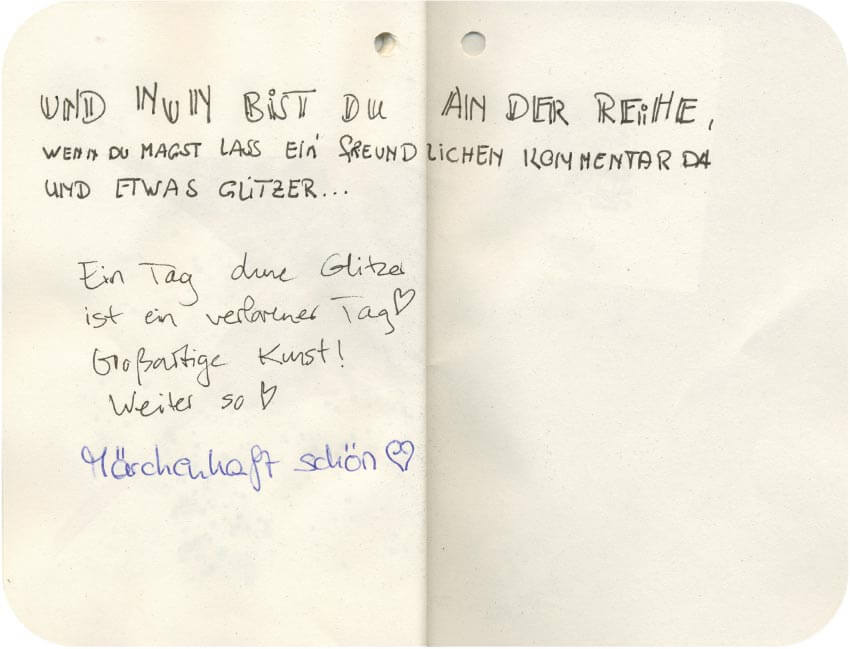 UND NUN BIST DU AN DER REIHE,
WENN DU MAGST LASS EIN' FREUNDLICHEN KOMMENTAR DA
UND ETWAS GLITZER...
Ein Tag ohne Glitzer
ist ein verlorener Tag♡
Großartige Kunst!
Weiter so ♡
Märchenhaft schön ♡